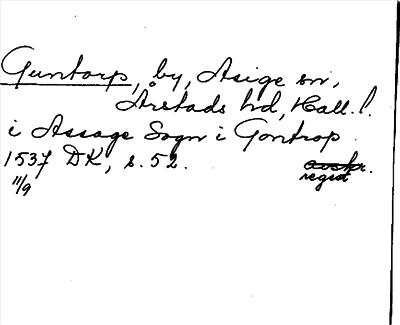 Guntorp, by, Asige sn,
Årstads hd, Hall. l.
i Assage Sogn i Gontrop
1537 DK, s. 52. avskr.
11/9 regist